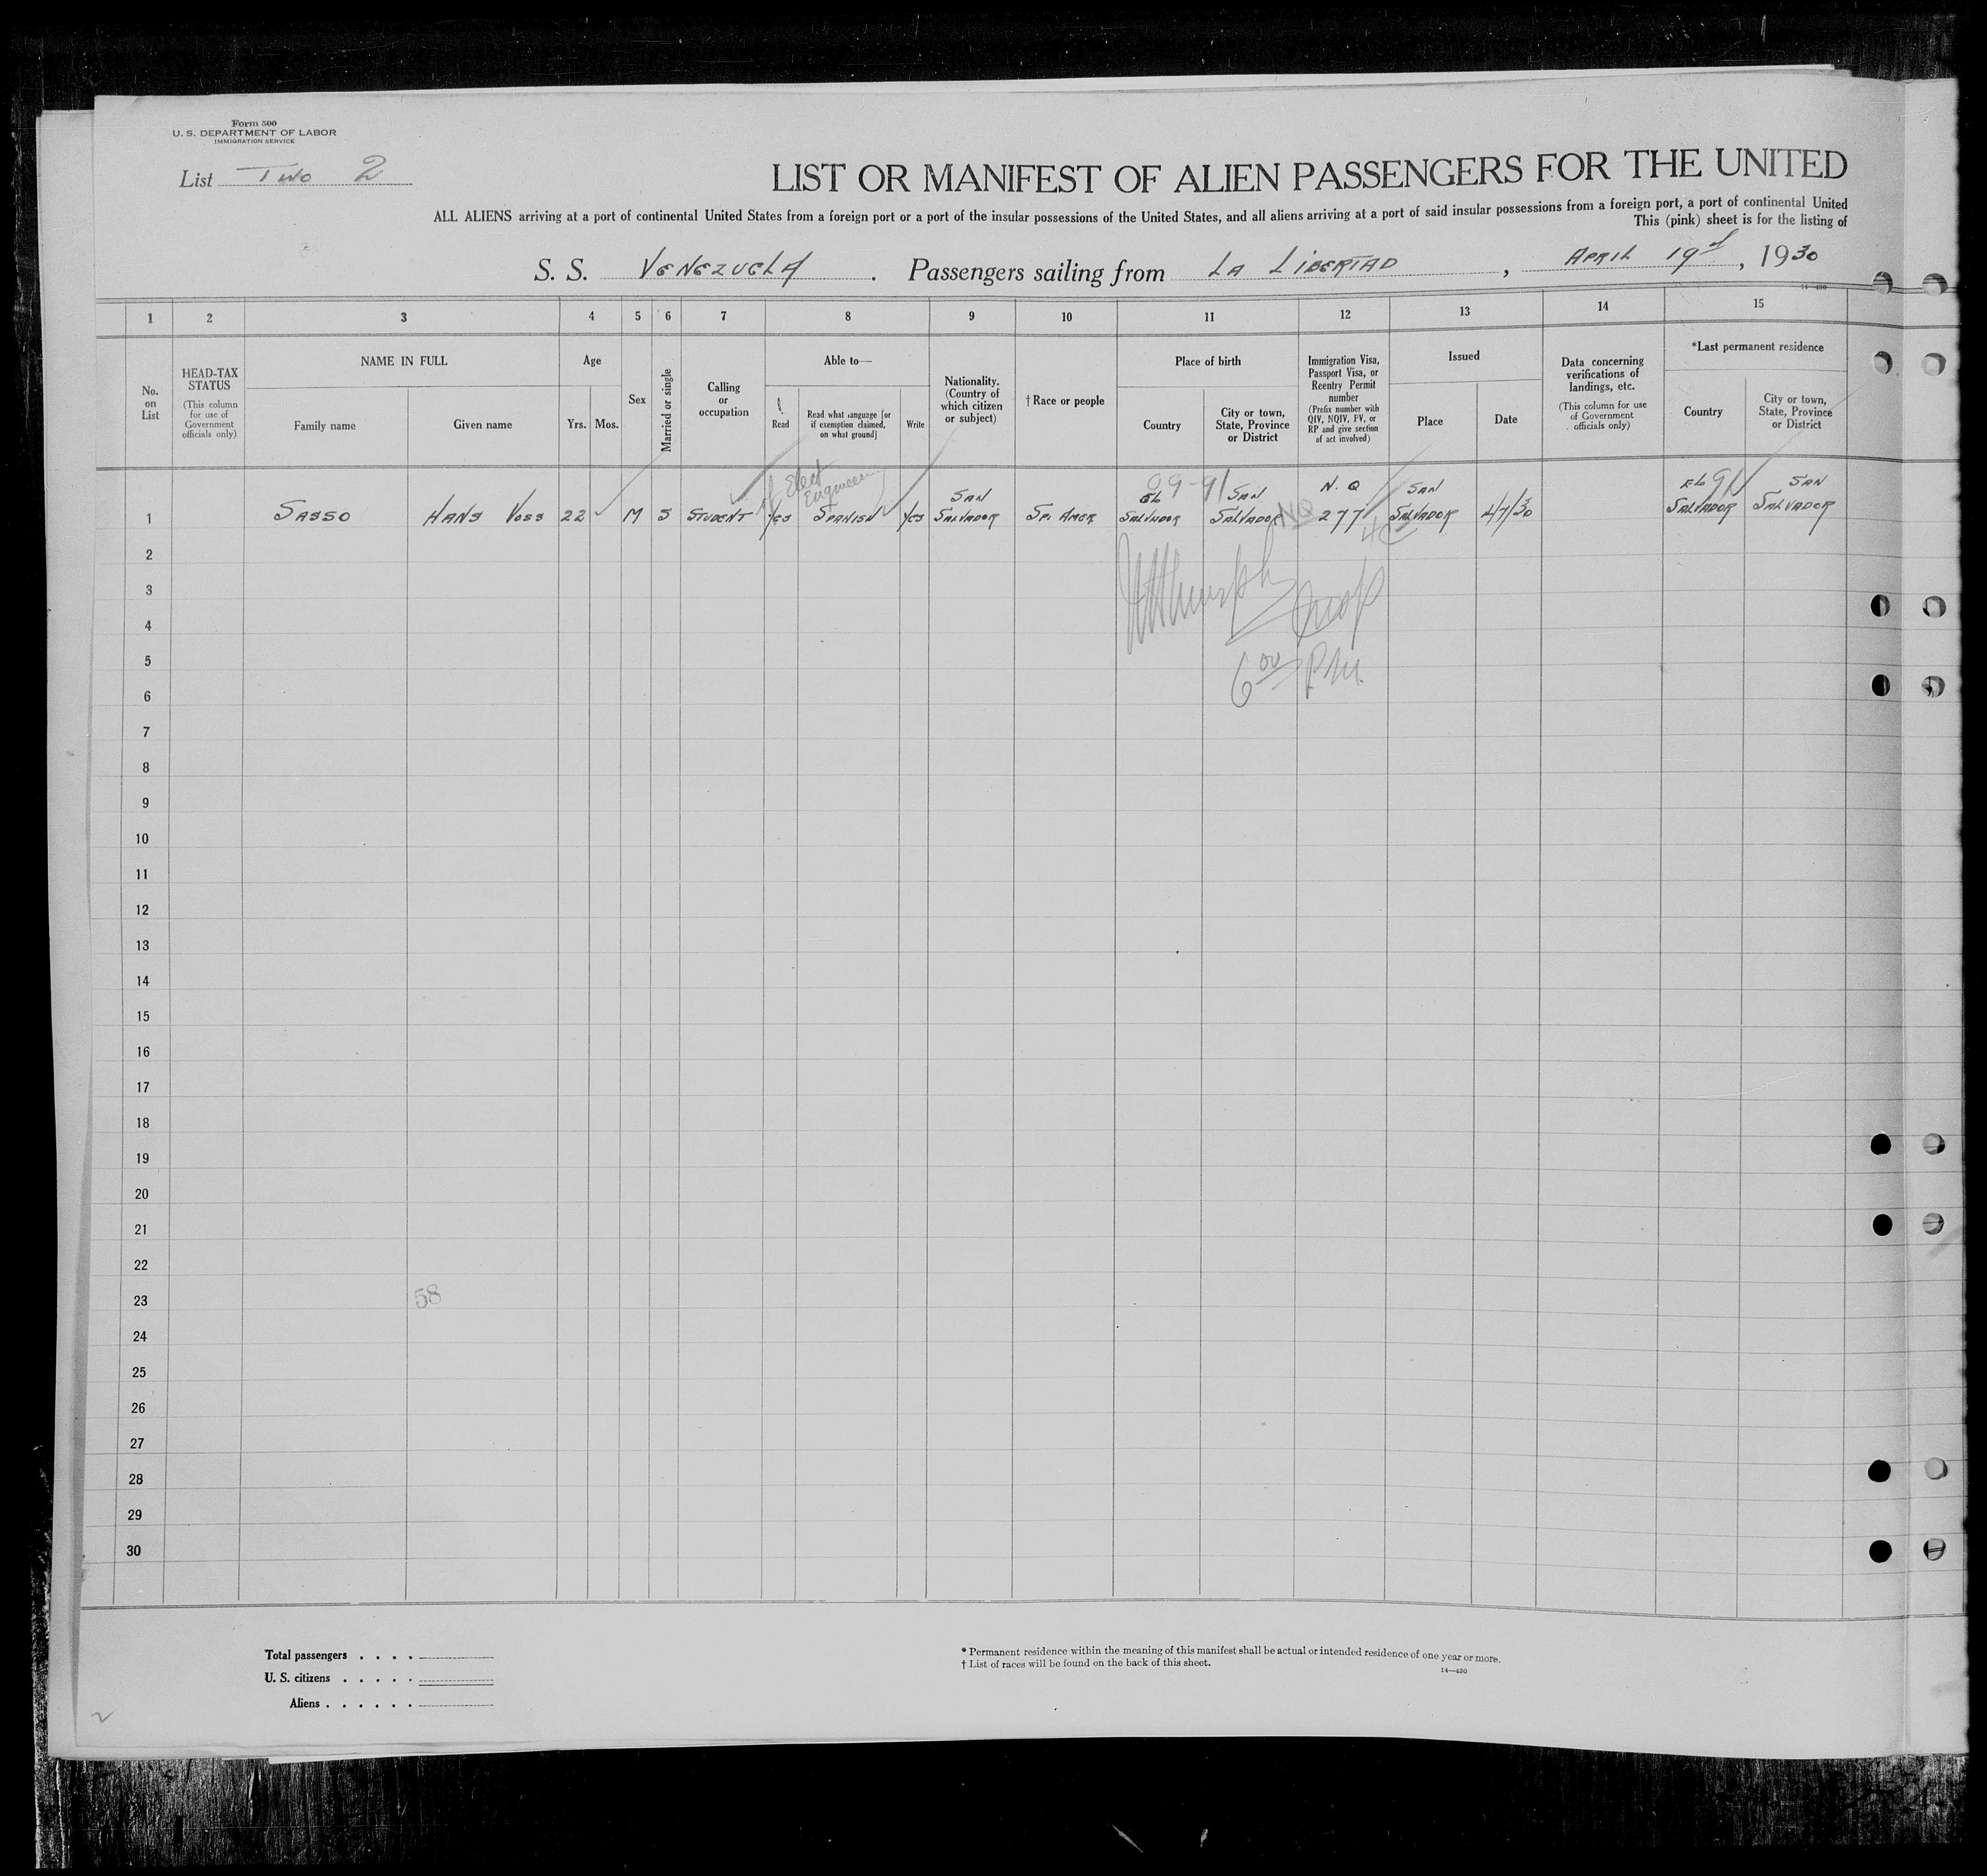 Form 500
U. S. DEPARTMENT OF LABOR
IMMIGRATION SERVICE
List Two 2
LIST OR MANIFEST OF ALIEN PASSENGERS FOR THE UNITED
ALL ALIENS arriving at a port of continental United States from a foreign port or a port of the insular possessions of the United States, and all aliens arriving at a port of said insular possessions from a foreign port, a port of continental United
This (pink) sheet is for the listing of
S. S. VENEZUELA . Passengers sailing from LA LIBERTAD , APRIL 19 , 1930
14—430
1 2 3 4 5 6 7 8 9 10 11 12 13 14 15
No. on List
HEAD-TAX STATUS
(This column for use of Government officials only)
NAME IN FULL
Family name
Given name
Age
Yrs.
Mos.
Sex
Married or single
Calling or occupation
Able to—
Read
Read what language [or if exemption claimed, on what ground]
Write
Nationality. (Country of which citizen or subject)
† Race or people
Place of birth
Country
City or town, State, Province or District
Immigration Visa, Passport Visa, or Reentry Permit number
(Prefix number with QIV, NQIV, PV, or RP and give section of act involved)
Issued
Place
Date
Data concerning verifications of landings, etc.
(This column for use of Government officials only)
*Last permanent residence
Country
City or town, State, Province or District
of Elect Engineering
09-91
91
1 SASSO HANS VOSS 22 M S STUDENT YES SPANISH YES SAN SALVADOR SP. AMER EL SALVADOR SAN SALVADOR NQ N. Q 277 SAN SALVADOR 4/7/30 EL SALVADOR SAN SALVADOR
2
3
4
5
6⁰⁰ P.M.
6
7
8
9
10
11
12
13
14
15
16
17
18
19
20
21
22
23
58
24
25
26
27
28
29
30
Total passengers . . . .
U. S. citizens . . . . .
Aliens . . . . . .
* Permanent residence within the meaning of this manifest shall be actual or intended residence of one year or more.
† List of races will be found on the back of this sheet.
14—430
2